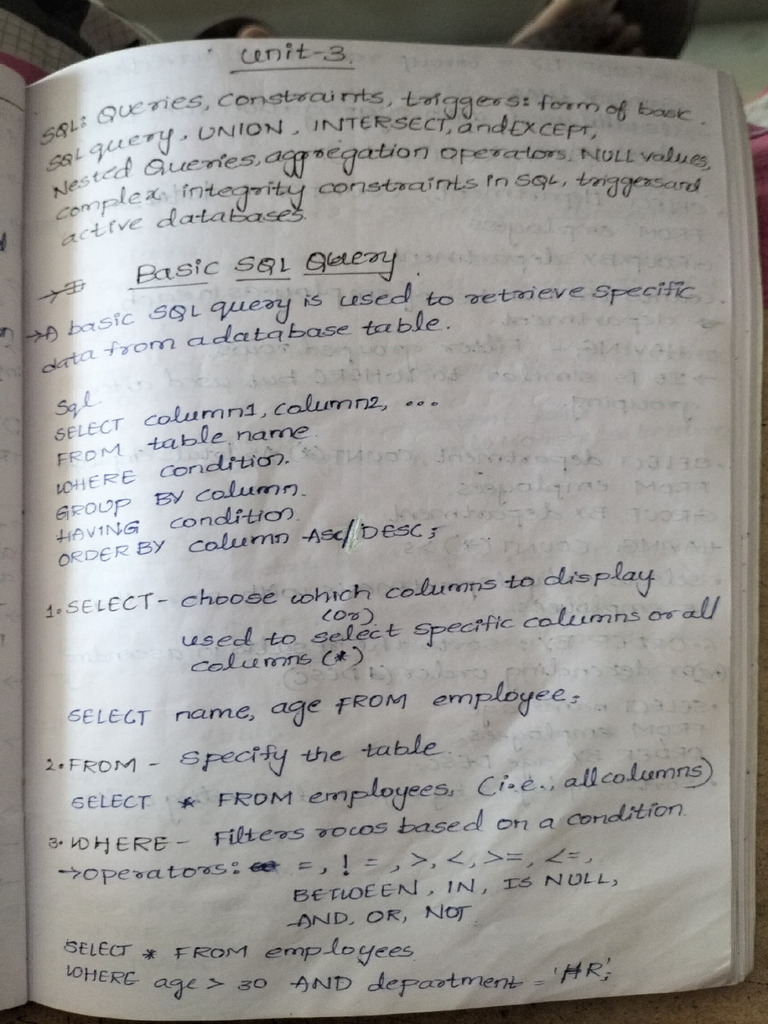 Unit-3.
SQL: Queries, constraints, triggers: form of basic
SQL query, UNION, INTERSECT, and EXCEPT,
Nested Queries, aggregation operators, NULL values,
complex integrity constraints in SQL, triggers and
active databases.
Basic SQL Query
→A basic SQL query is used to retrieve specific
data from a database table.
Sql
SELECT column1, column2, ...
FROM table_name
WHERE condition.
GROUP BY column.
HAVING condition
ORDER BY column ASC//DESC;
1. SELECT - choose which columns to display
(or)
used to select specific columns or all
columns (*)
SELECT name, age FROM employee;
2. FROM - specify the table.
SELECT * FROM employees, (i.e., all columns)
3. WHERE - Filters rows based on a condition
→operators: =, !=, >, <, >=, <=,
BETWEEN, IN, IS NULL,
AND, OR, NOT
SELECT * FROM employees
WHERE age > 30 AND department = 'HR';